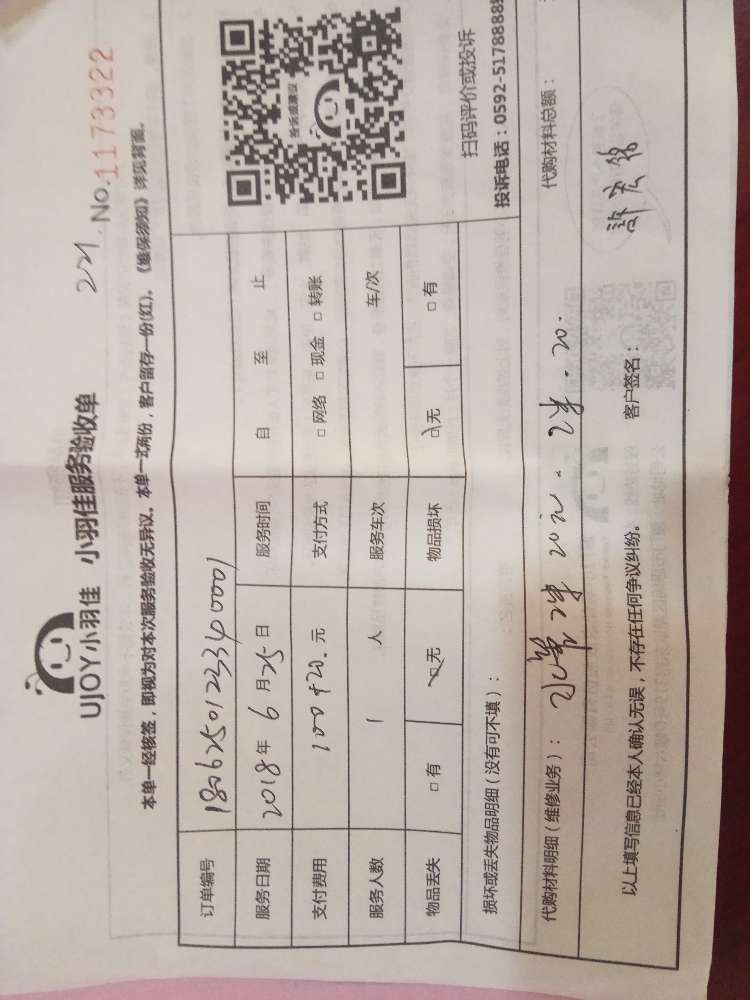 UJOY小羽佳 小羽佳服务验收单
221. No.1173322
本单一经核签，即视为对本次服务验收无异议。本单一式两份，客户留存一份(红)。《维保须知》详见背面。
订单编号 1806250123340001
服务日期 2018年6月25日 服务时间 自 至 止
支付费用 100+20.元 支付方式 □网络 □现金 □转账
服务人数 1 人 服务车次 车/次
物品丢失 □有 □无 物品损坏 □无 □有
投诉或建议
扫码评价或投诉
投诉电话：0592-5178888
损坏或丢失物品明细（没有可不填）：
代购材料明细（维修业务）： 20元. 20. 代购材料总额：
以上填写信息已经本人确认无误，不存在任何争议纠纷。 客户签名：